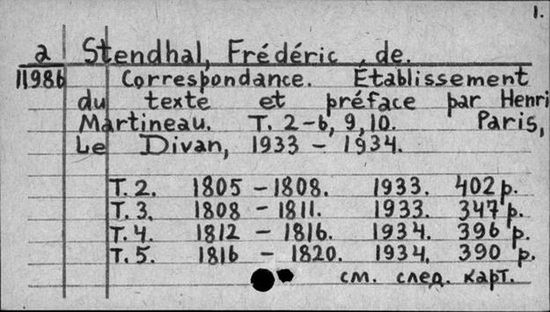 1.
a Stendhal, Frédéric, de.
11986 Correspondance. Établissement
du texte et préface par Henri
Martineau. T. 2-6, 9, 10. Paris,
Le Divan, 1933 - 1934.
T. 2. 1805 - 1808. 1933. 402 p.
T. 3. 1808 - 1811. 1933. 347 p.
T. 4. 1812 - 1816. 1934. 396 p.
T. 5. 1816 - 1820. 1934. 390 p.
см. след. карт.